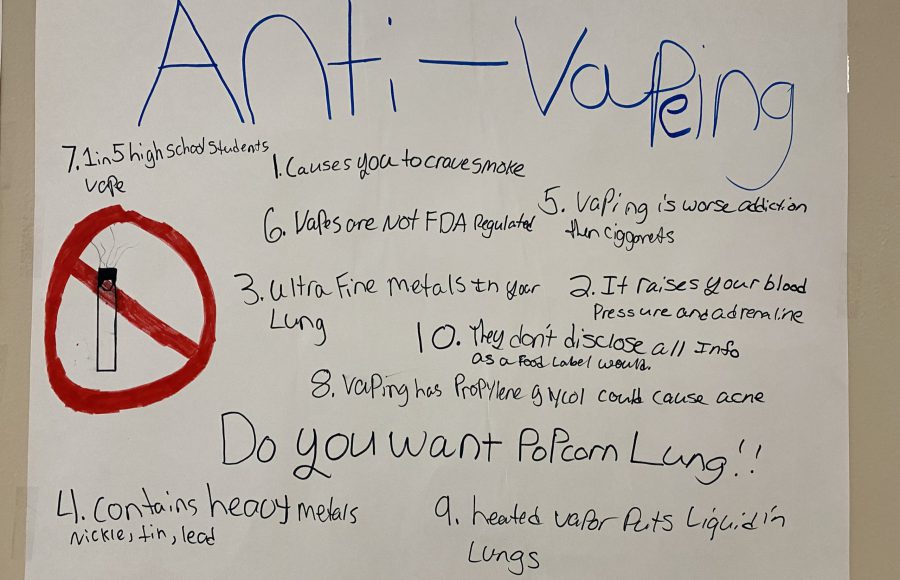 Anti-Vapeing
7. 1 in 5 high school students
vape
1. Causes you to crave smoke
5. Vaping is worse addiction
then ciggarets
6. Vapes are Not FDA Regulated
3. ultra Fine metals In your
Lung
2. It raises your blood
Pressure and adrenaline
10. They don't disclose all Info
as a Food Label would.
8. Vaping has Propylene glycol could cause acne
Do you want PoPcorn Lung!!
4. contains heavy metals
Nickle, tin, lead
9. heated vapor Puts Liquid in
Lungs